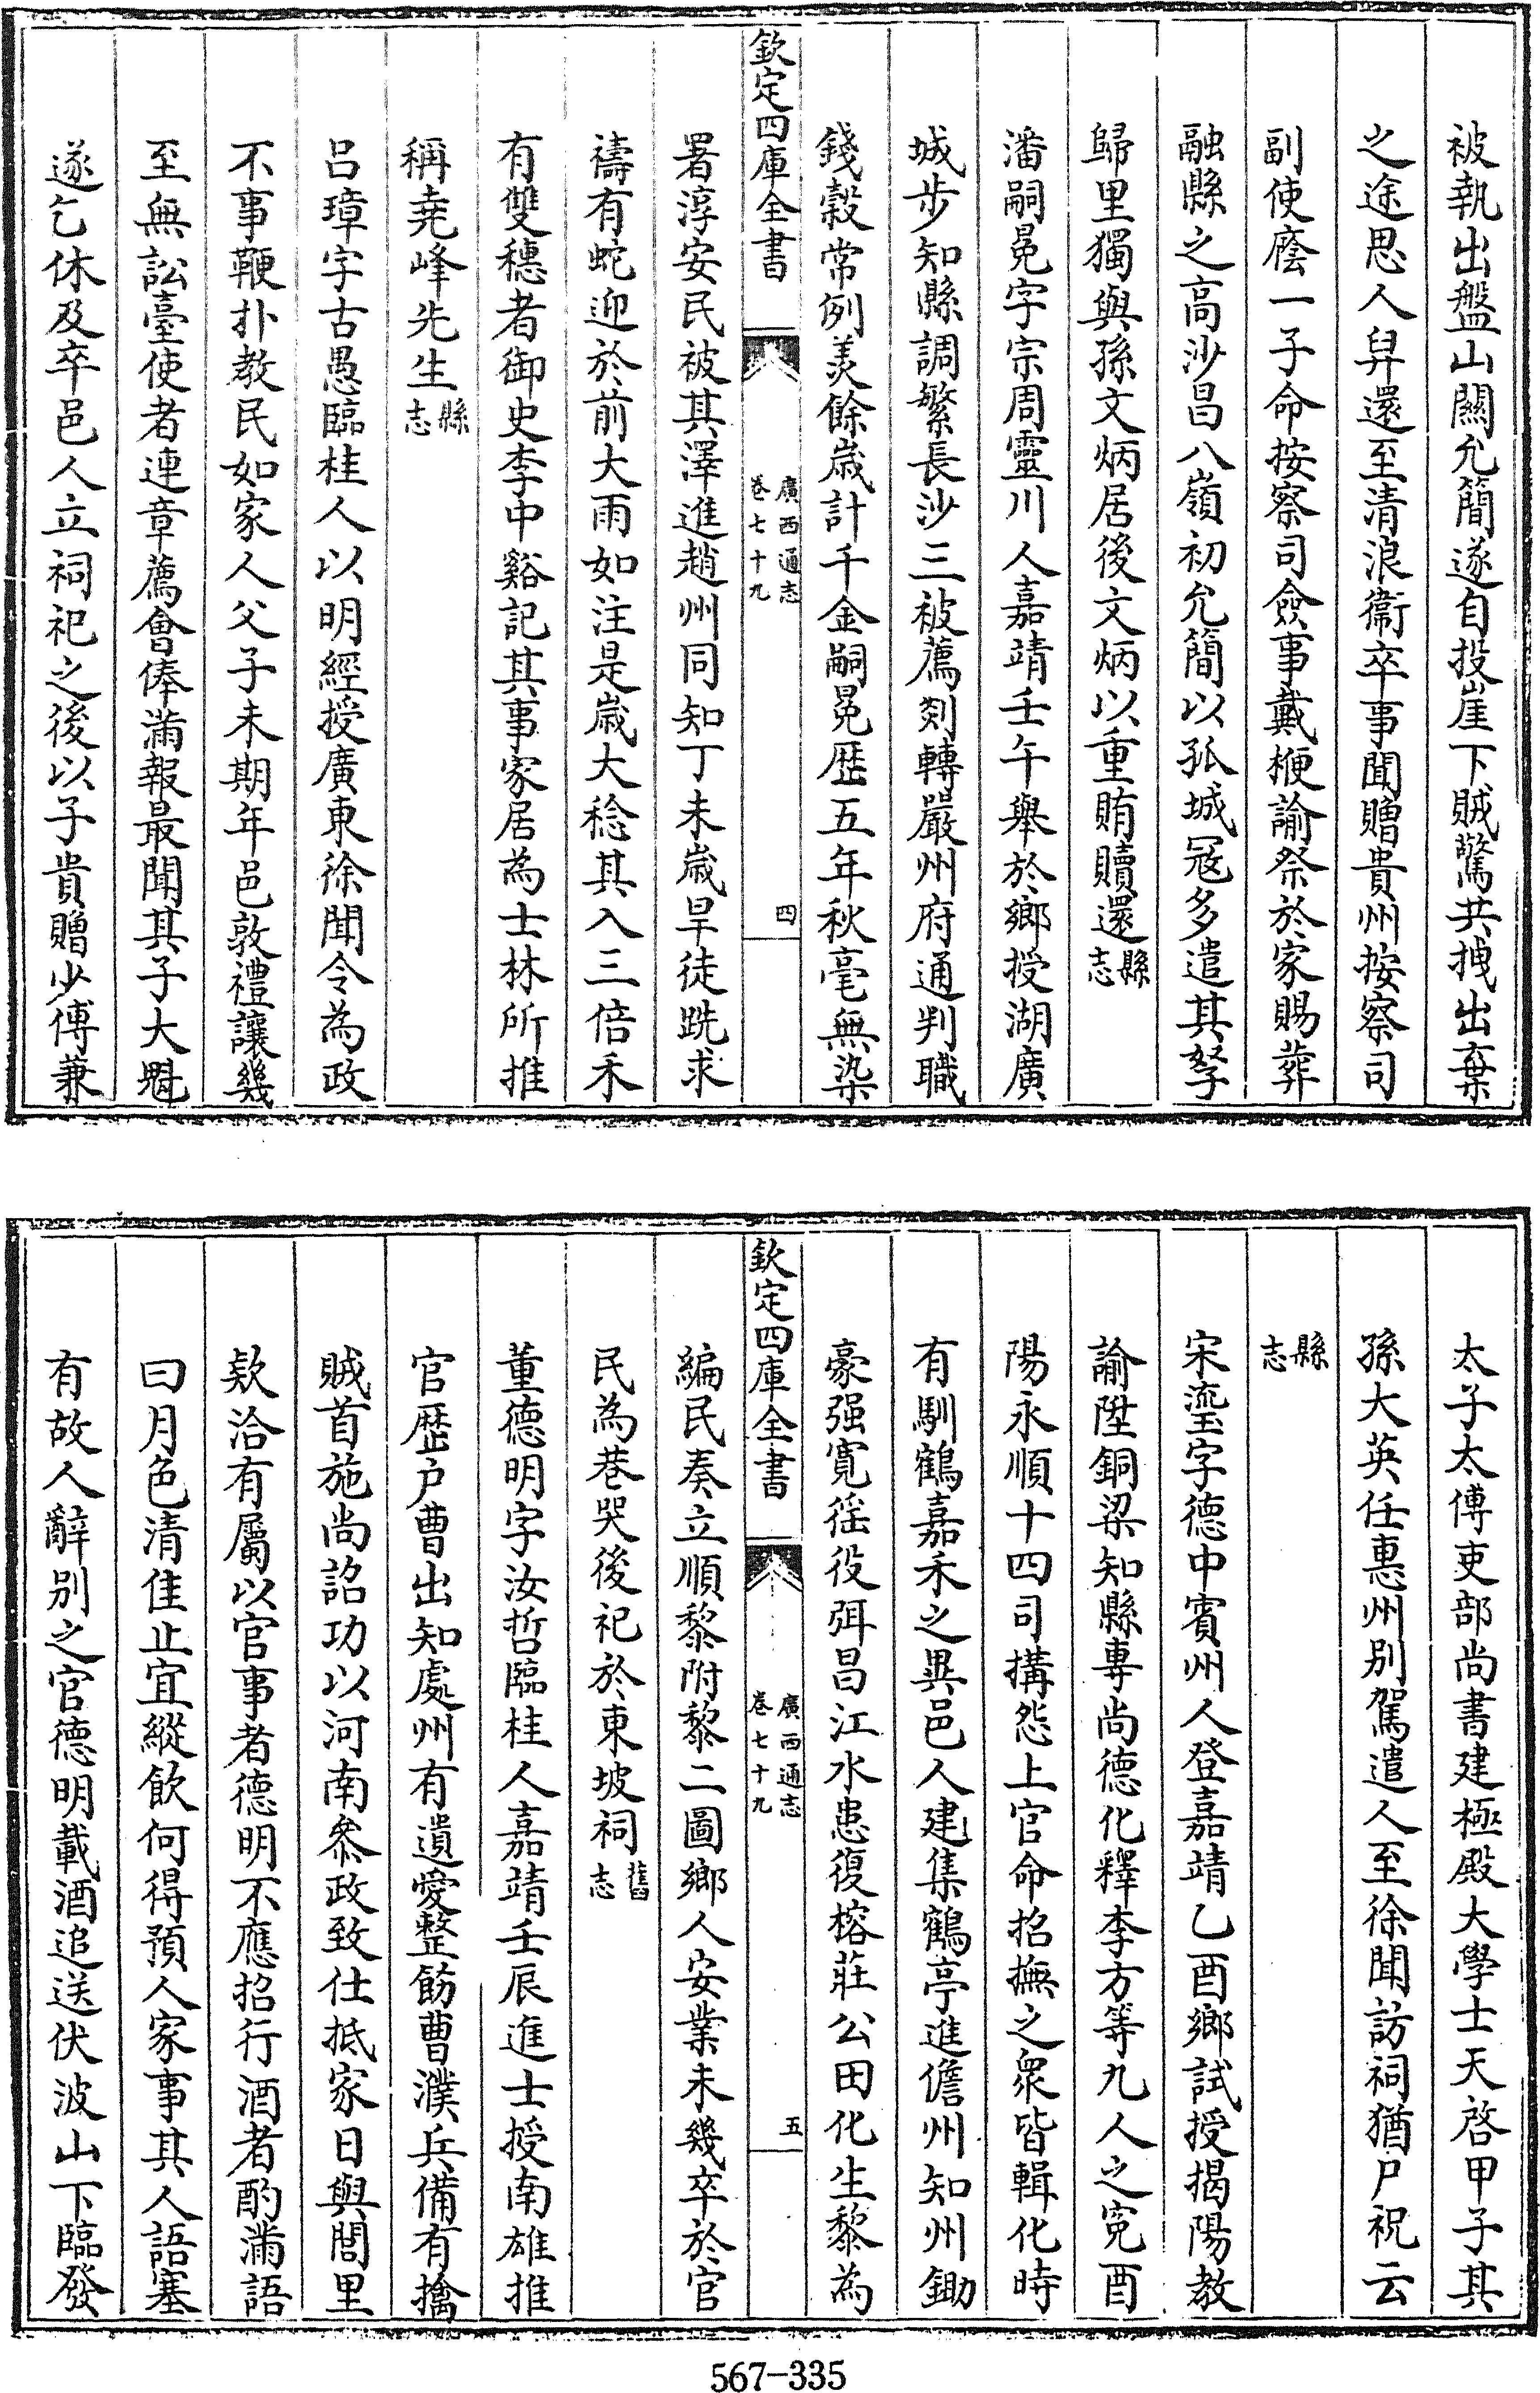 被執出盤山關允簡遂自投崖下賊驚共拽出棄
之途思人舁還至清浪衞卒事聞贈貴州按察司
副使廕一子命按察司僉事戴楩諭祭於家賜葬
融縣之高沙昌八嶺初允簡以孤城冦多遣其孥
歸里獨與孫文炳居後文炳以重賄贖還縣志
潘嗣冕字宗周靈川人嘉靖壬午舉於鄉授湖廣
城步知縣調繁長沙三被薦剡轉嚴州府通判職
錢糓常例羨餘歳計千金嗣冕歴五年秋毫無染
欽定四庫全書
廣西通志
卷七十九
四
署淳安民被其澤進趙州同知丁未歳旱徒跣求
禱有蛇迎於前大雨如注是歳大稔其入三倍禾
有雙穗者御史李中谿記其事家居為士林所推
稱堯峰先生縣志
呂璋字古愚臨桂人以明經授廣東徐聞令為政
不事鞭扑教民如家人父子未期年邑敦禮讓幾
至無訟臺使者連章薦會俸滿報最聞其子大魁
遂乞休及卒邑人立祠祀之後以子貴贈少傅兼
太子太傅吏部尚書建極殿大學士天啓甲子其
孫大英任惠州别駕遣人至徐聞訪祠猶尸祝云
縣志
宋瑬字德中賓州人登嘉靖乙酉鄉試授揭陽教
諭陞銅梁知縣專尚德化釋李方等九人之寃酉
陽永順十四司搆怨上官命招撫之衆皆輯化時
有馴鶴嘉禾之異邑人建集鶴亭進儋州知州鋤
豪强寛徭役弭昌江水患復榕莊公田化生黎為
欽定四庫全書
廣西通志
卷七十九
五
編民奏立順黎附黎二圖鄉人安業未幾卒於官
民為巷哭後祀於東坡祠舊志
董德明字汝哲臨桂人嘉靖壬辰進士授南雄推
官歴户曹出知處州有遺愛整飭曹濮兵備有擒
賊首施尚詔功以河南叅政致仕抵家日與閭里
欵洽有屬以官事者德明不應招行酒者酌滿語
曰月色清佳止宜縱飲何得預人家事其人語塞
有故人辭别之官德明載酒追送伏波山下臨發
567-335